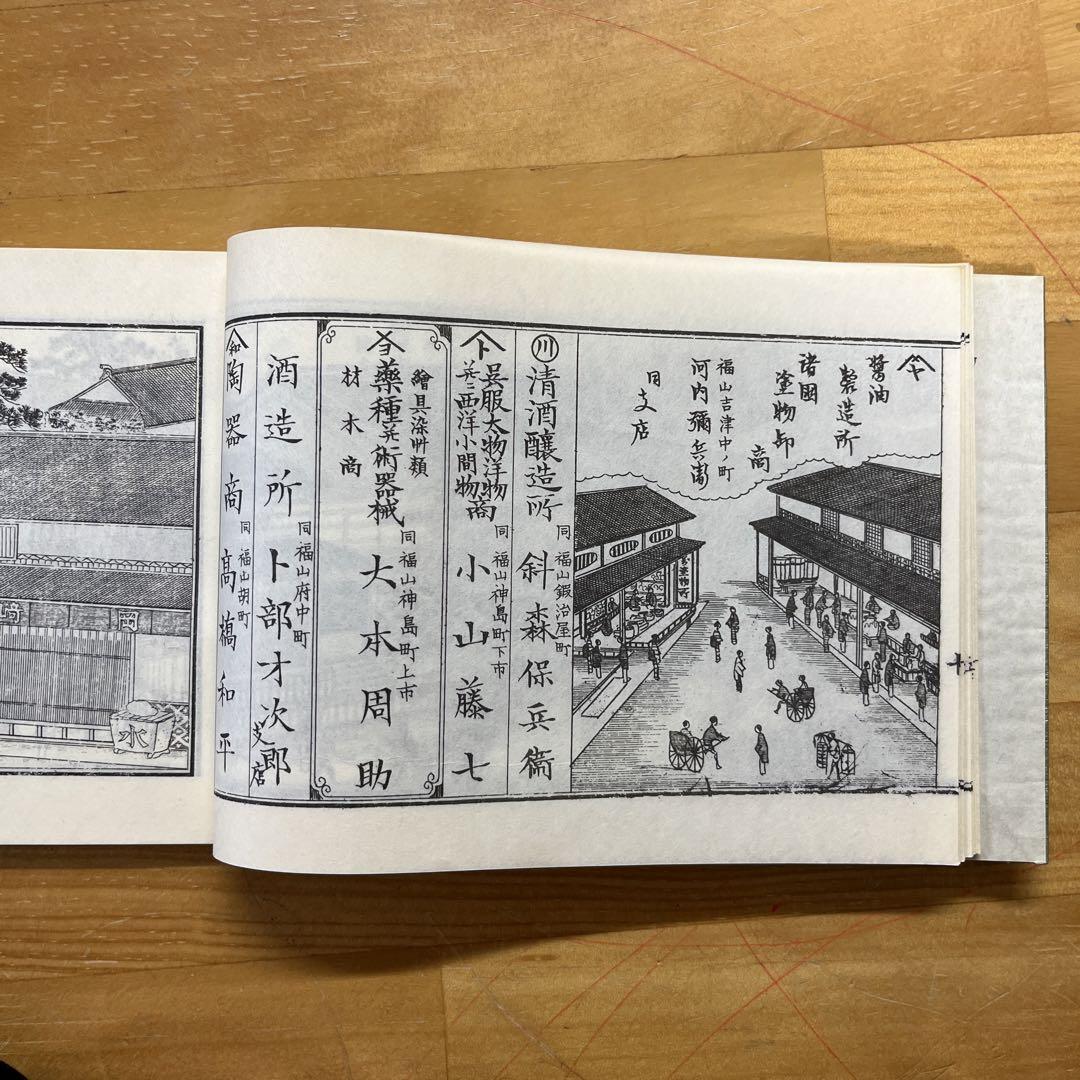 醬油
製造所
諸國
塗物卸
商
福山吉津中ノ町
河内彌兵衞
同支店
川
清酒釀造所
同
福山鍛治屋町
斜森保兵衞
ト
呉服太物洋物
并ニ西洋小間物商
同
福山神島町下市
小山藤七
繪具染艸類
藥種并術器械
材木商
同
福山神島町上市
大本周助
酒造所
同
福山府中町
卜部才次郎
支店
和
陶器商
同
福山胡町
髙橋和平
岡
﨑
水